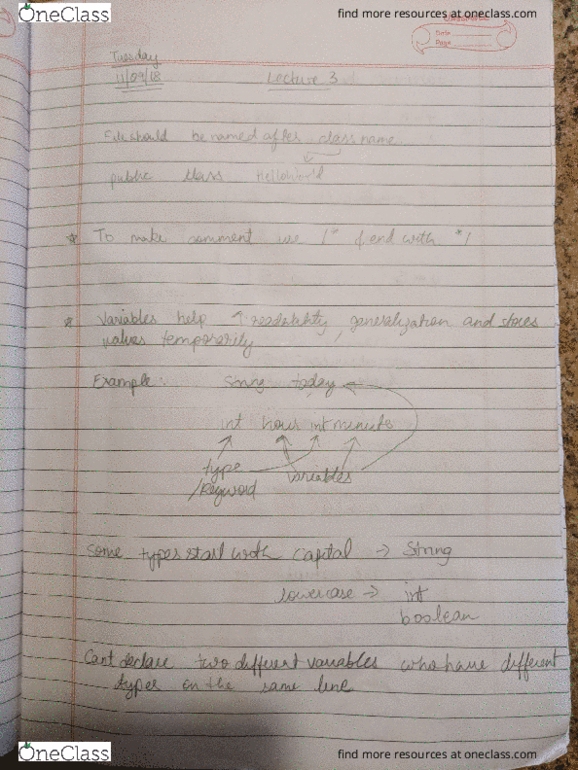 OneClass
find more resources at oneclass.com
Date
Page
Tuesday
11/09/18
Lecture 3
File should be named after class name
public class HelloWorld
* To make comment use /* & end with */
* Variables help ↑ readability, generalization and stores
values temporarily
Example: String today
int hours int minutes
type
/Keyword
Variables
Some types start with capital → String
lowercase → int
boolean
Cant declare two different variables who have different
types on the same line
OneClass
find more resources at oneclass.com